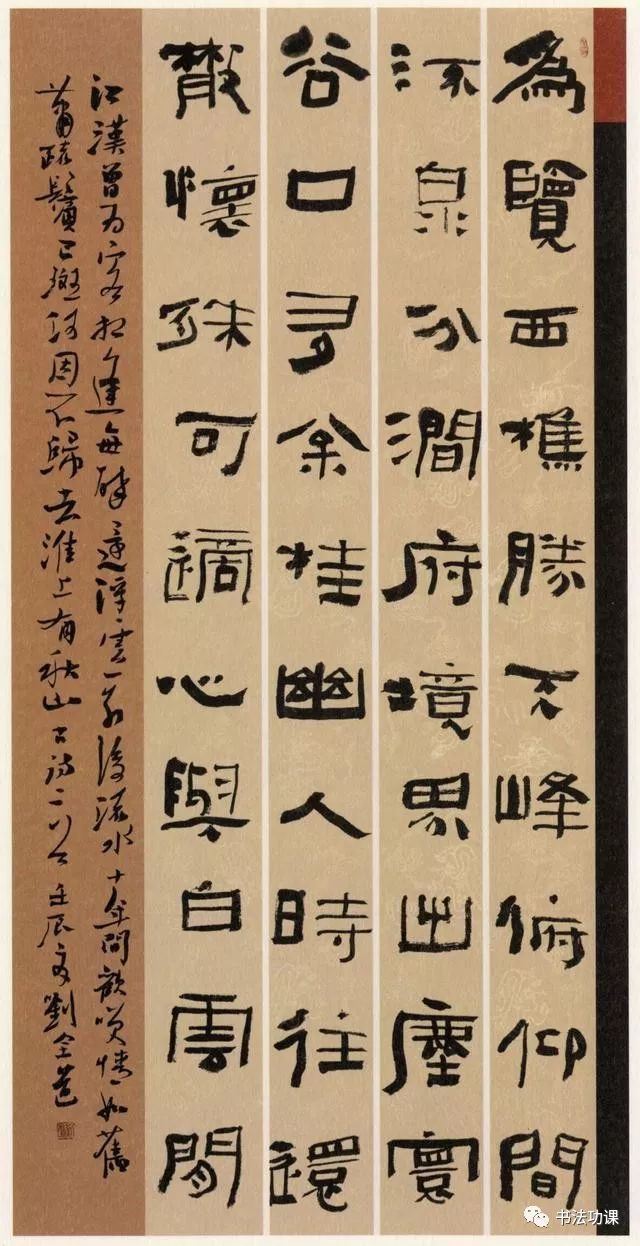 為覽西樵勝峰俯仰間
流泉分澗府境界出塵寰
谷口多余桂幽人時往還
散懷殊可適心與白雲閒
江漢曾為客相逢每醉還浮雲一別後流水十年間歡笑情如舊
蕭疏鬢已斑何因不歸去淮上有秋山古詩二首壬辰劉全道
书法功课